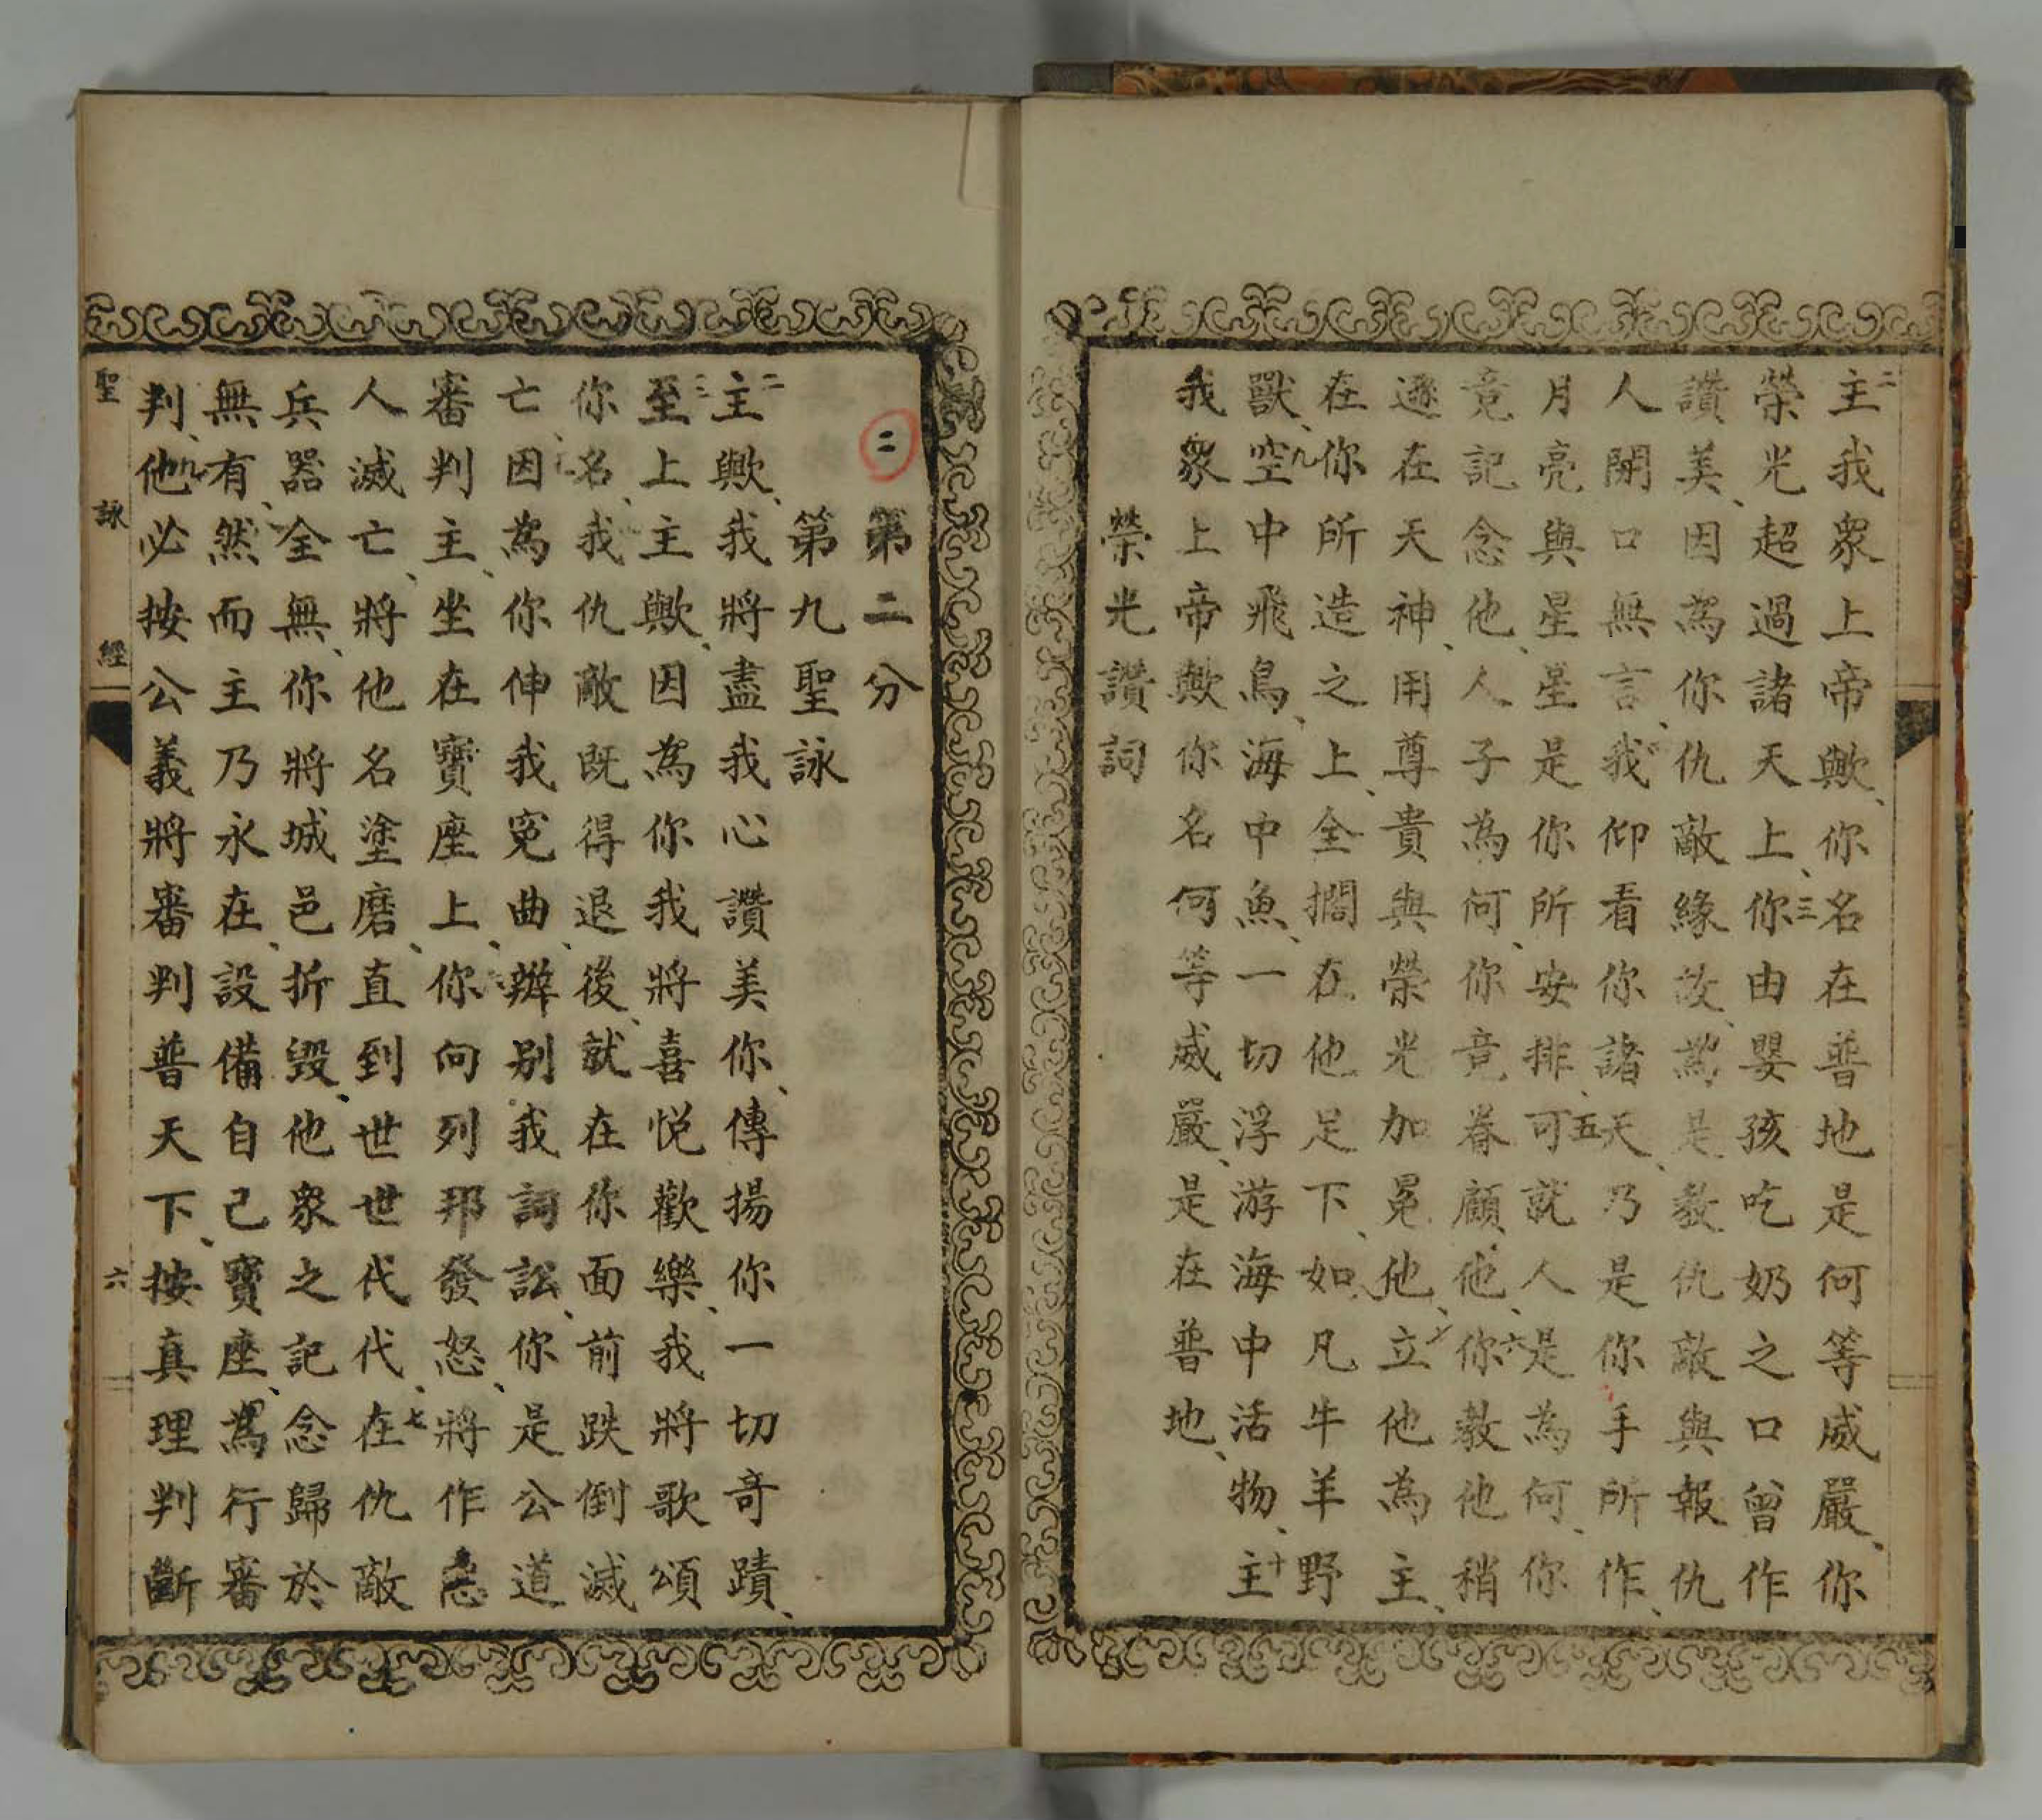 二主我衆上帝歟、你名在普地是何等威嚴、你
榮光超過諸天上、三你由嬰孩吃奶之口曾作
讚美、因為你仇敵緣故、為是教仇敵與報仇
人閉口無言、我仰看你諸天、乃是你手所作、
月亮與星星是你所安排、五可就人是為何、你
竟記念他、人子為何、你竟眷顧他、六你教他稍
遜在天神、用尊貴與榮光加冕他、七立他為主、
在你所造之上、全擱在他足下、如凡牛羊野
獸、九空中飛鳥、海中魚、一切浮游海中活物、十主
我衆上帝歟你名何等威嚴、是在普地、
榮光讚詞
二
第二分
第九聖詠
二主歟、我將盡我心讚美你、傳揚你一切奇蹟、
三至上主歟、因為你我將喜悅歡樂、我將歌頌
你名、我仇敵既得退後、就在你面前跌倒滅
亡、因為你伸我冤曲、辦別我詞訟、你是公道
審判主、坐在寶座上、你向列邦發怒、將作惡
人滅亡、將他名塗磨、直到世世代代、七在仇敵
兵器全無、你將城邑折毀、他衆之記念歸於
無有、然而主乃永在、設備自己寶座、為行審
判、九他必按公義將審判普天下、按真理判斷
聖詠經
六